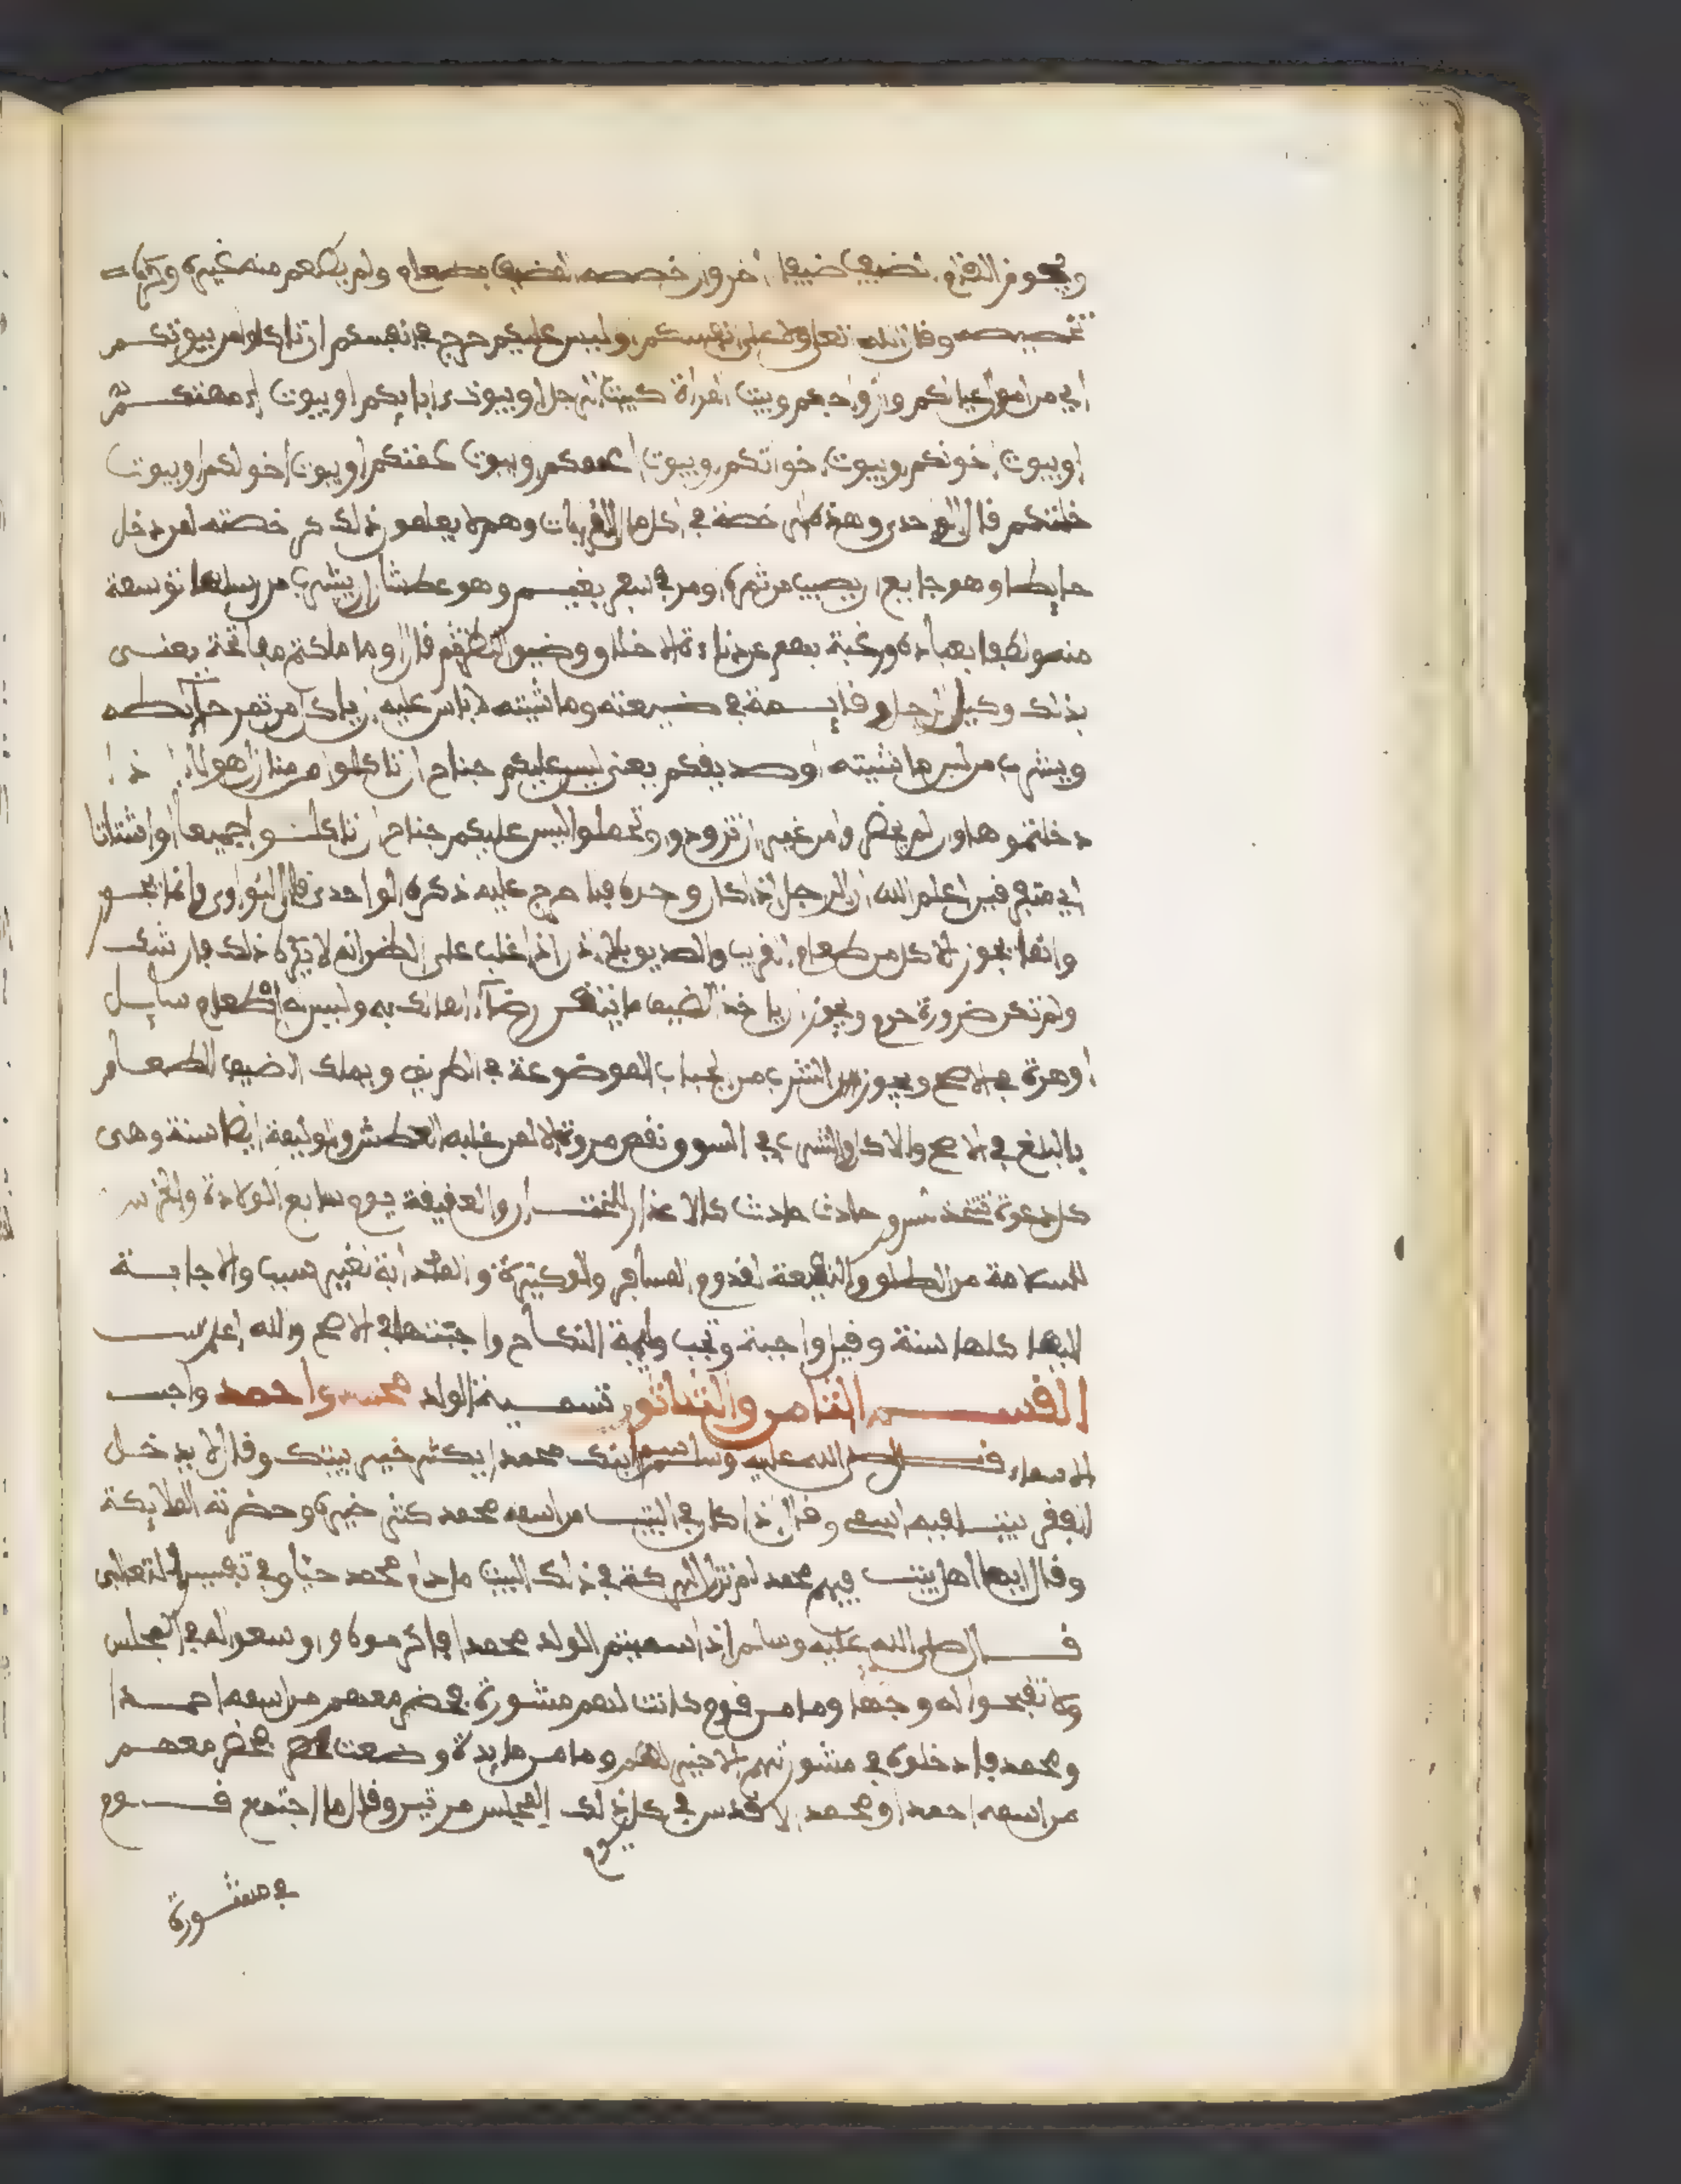 الضيف ضيفا اخر وان خصصه المضيف بطعام ولم يطعم منه غيره
تخصيصه وقال الله تعالى ولا على انفسكم وليس عليكم حرج في انفسكم ان تاكلوا من بيوتكم
اي من اموال عيالكم وازواجكم وبيت المراة كبيت الرجل او بيوت ءابايكم او بيوت امهتكم
او بيوت اخونكم او بيوت اخواتكم او بيوت اعممكم او بيوت عمتكم او بيوت اخولكم او بيوت
خلتكم قال الواحدي وهذه الرخصة في اكل مال القرابات وهم لا يعلمون ذلك كرخصته لمن دخل
حايطا وهو جايع ان يصيب من ثمره او مر في سفر بغنم وهو عطشان ان يشرب من رسلها توسعة
منه ولطفا بعباده ورغبة بهم عن دناءة الاخلاق وضيق النظر ثم قال او ما ملكتم مفاتحه يعنى
بذلك وكيل الرجل وقايمه في ضيعته وماشيته لا باس عليه ان ياكل من ثمر حايطه
ويشرب من لبن ماشيته او صديقكم يعني ليس عليكم جناح ان تاكلوا من منازل هولاء اذا
دخلتموها وان لم يحضروا من غير ان تزودوا وتحملوا ليس عليكم جناح ان تاكلوا جميعا او اشتاتا
اي متفرقين اعلم الله ان الرجل اذا اكل وحده فلا حرج عليه ذكره الواحدي قال النواوي
وانما يجوز الاكل من طعام القريب والصديق بلا اذن اذا غلب على الظن انه لا يكره ذلك فان شك
ولم تكن ضرورة حرم ويجوز ان ياخذ الضيف ما يتيقن رضاء المالك به وليس له اطعام سايل
او هرة في الاصح ويجوز الشرب من الجباب الموضوعة في الطريق ويملك الضيف الطعام
بالبلغ في الاصح والاكل والشرب في السوق نقص مروة الا لمن غلبه العطش والوليمة ايضا سنة وهى
كل دعوة تتخذ لسرور حادث حادث كالاعذار للختان والعقيقة يوم سابع الولادة والخرس
للسلامة من الطلق والنقيعة لقدوم المسافر والوكيرة والمادبة لغير سبب والاجابة
اليها كلها سنة وقيل واجبة وتجب وليمة النكاح واجبتها في الاصح والله اعلم
القسم الثامن والثلاثون تسمية الولد محمد واحمد واجب
الاسماء قال صلى الله عليه وسلم اسم ابنك محمدا يكثر خير بيتك وقال لا يدخل
الفقر بيتا فيه اسمى وقال اذا كان في البيت من اسمه محمد كثر خيره وحضرته الملايكة
وقال ايما اهل بيت فيهم محمد لم تزل البركة في ذلك البيت ما دام محمد حيا وفي تفسير الثعلبى
قال صلى الله عليه وسلم اذا سميتم الولد محمدا فاكرموه واوسعوا له في المجلس
ولا تقبحوا له وجها وما من قوم كانت لهم مشورة فحضر معهم من اسمه احمد
ومحمد فادخلوه في مشورتهم الا خير لهم وما من مايدة وضعت فحضر معهم
من اسمه احمد او محمد الا قدس في كل يوم ذلك المجلس مرتين وقال ما اجتمع قوم
في مشورة